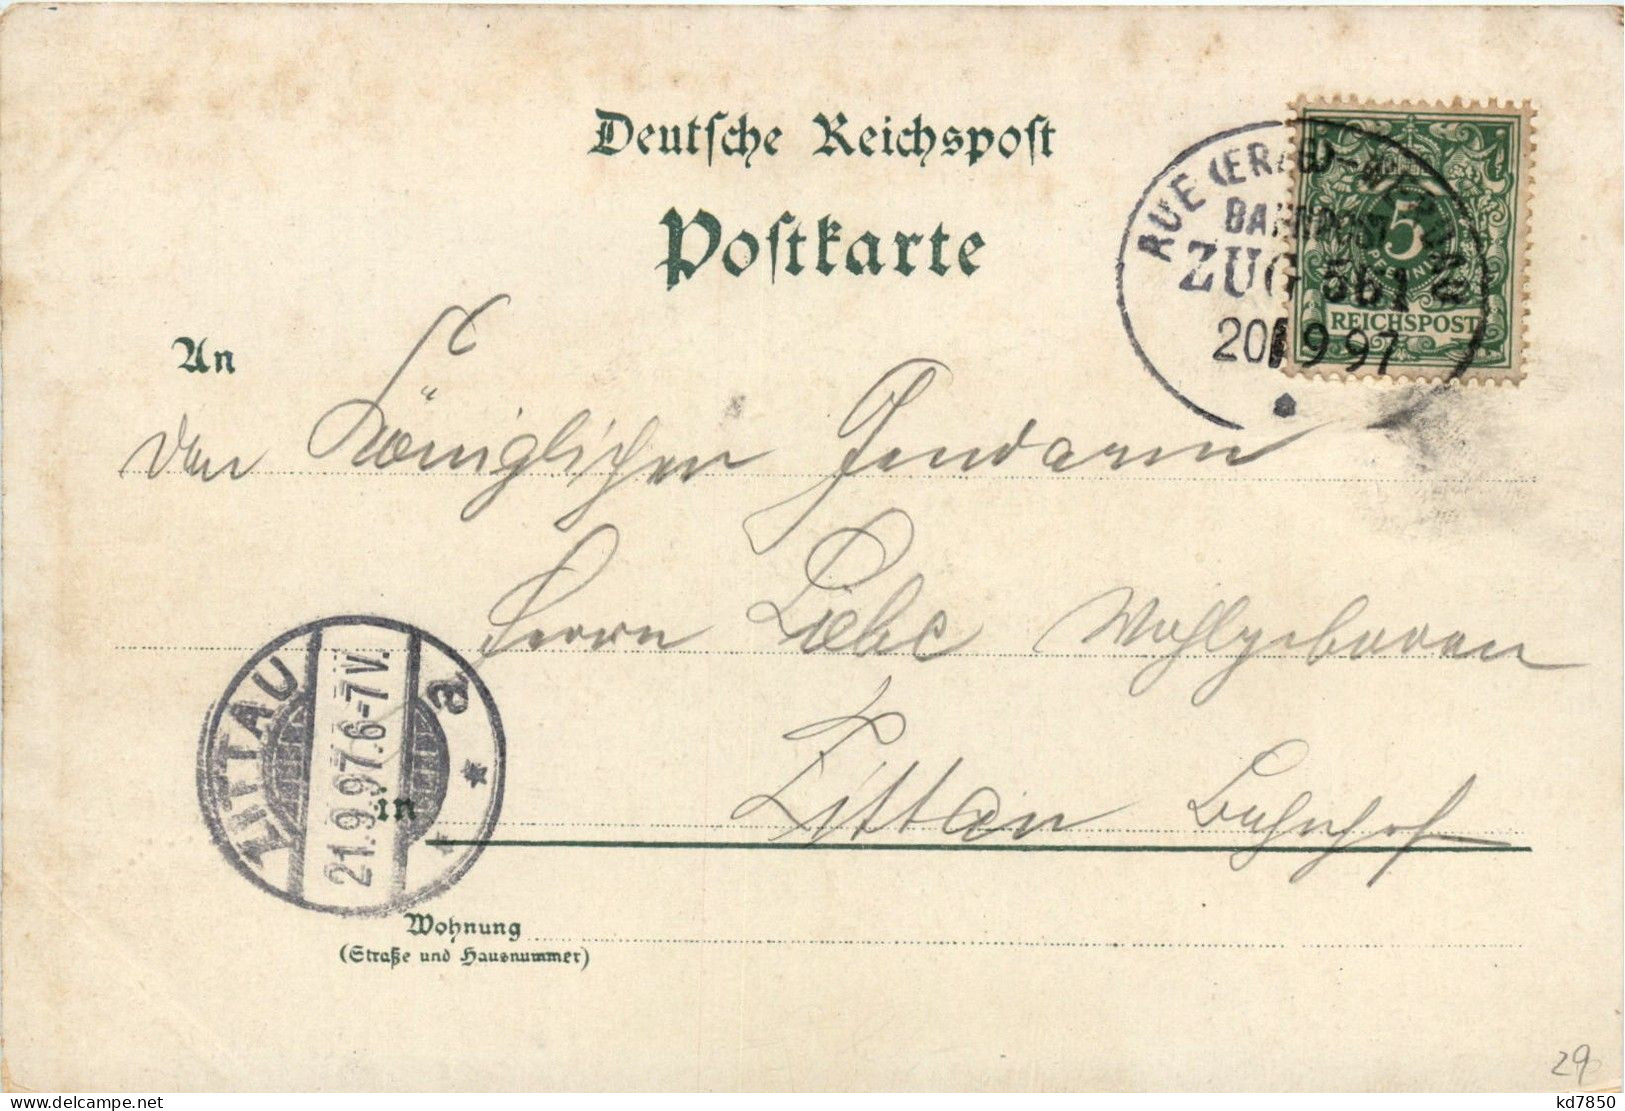 Deutsche Reichspost
Postkarte
AUE (ERZGB)-WERDAU
BAHNPOST
ZUG 561
20/9 97
5
PFENNIG
REICHSPOST
An
den Königlichen Gendarm
Herrn Liebe Wohlgeboren
in Zittau Bahnhof
ZITTAU
21.9.97.6-7V.
a
* *
Wohnung
(Straße und Hausnummer)
29
www.delcampe.net
kd7850